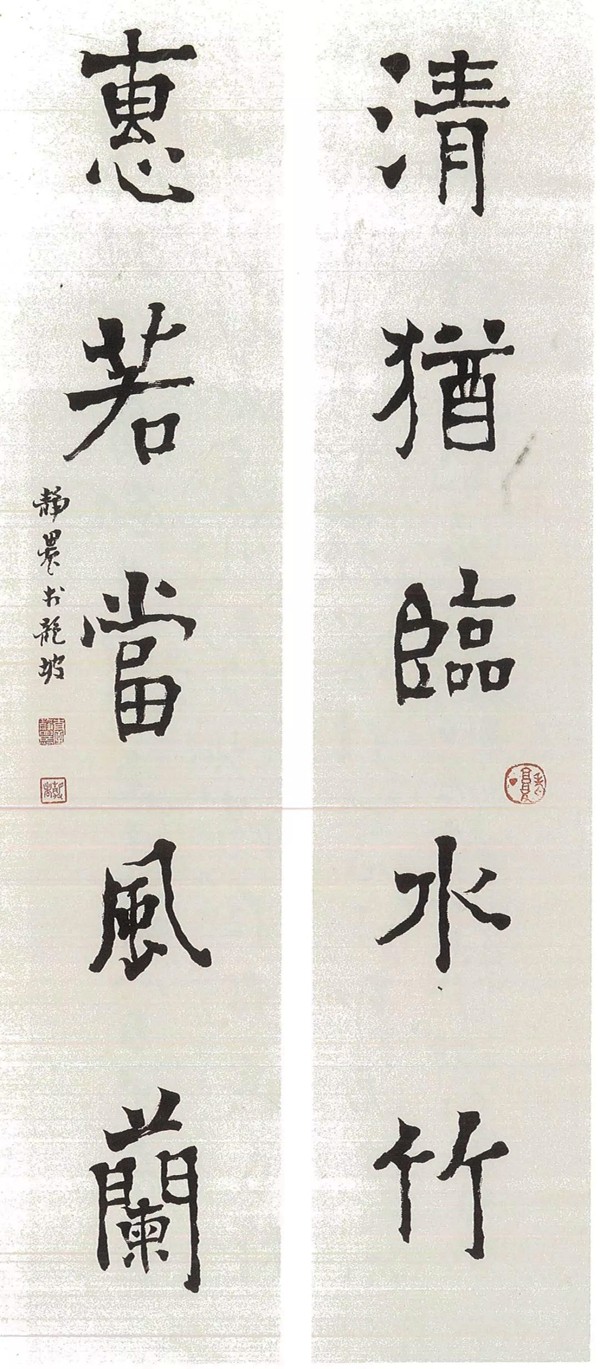 清猶臨水竹
惠若當風蘭
靜農書龍坡